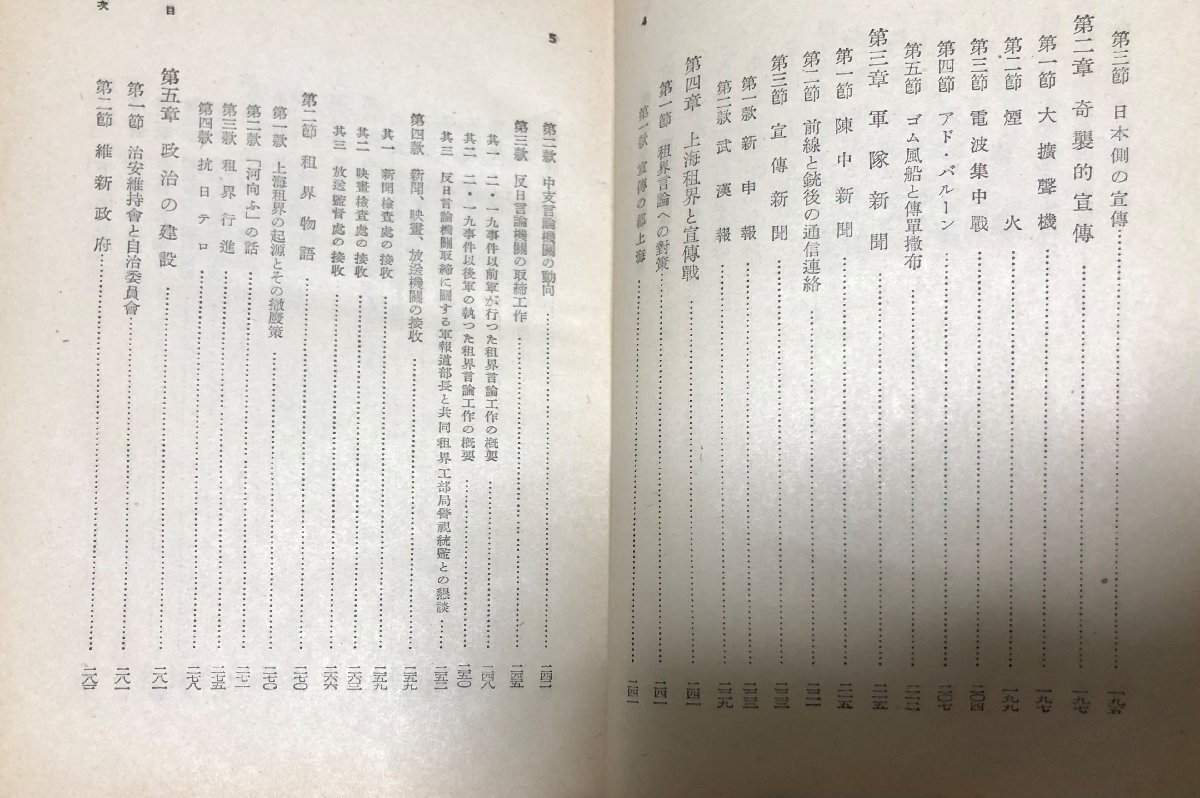 4
第三節 日本側の宣傳
第二章 奇襲的宣傳 一九七
第一節 大擴聲機 一九七
第二節 煙火 一九九
第三節 電波集中戰 二〇四
第四節 アド・バルーン 二〇七
第五節 ゴム風船と傳單撒布
第三章 軍隊新聞 二一五
第一節 陳中新聞 二一五
第二節 前線と銃後の通信連絡
第三節 宣傳新聞
第一款 新申報
第二款 武漢報
第四章 上海租界と宣傳戰 二四一
第一節 租界言論への對策 二四一
第一款 宣傳の都上海 二四一
5
第二款 中支言論機關の動向
第三款 反日言論機關の取締工作 二四五
其一 二・一九事件以前軍が行つた租界言論工作の概要 二四八
其二 二・一九事件以後軍の執つた租界言論工作の概要 二五〇
其三 反日言論機關取締に關する軍報道部長と共同租界工部局警視統監との懇談
第四款 新聞、映畫、放送機關の接收 二五九
其一 新聞檢查處の接收 二五九
其二 映畫檢查處の接收
其三 放送監督處の接收 二六六
第二節 租界物語 二七〇
第一款 上海租界の起源とその撤廢策 二七〇
第二款 「河向ふ」の話
第三款 租界行進 二七五
第四款 抗日テロ 二七八
第五章 政治の建設
第一節 治安維持會と自治委員會
第二節 維新政府
目次